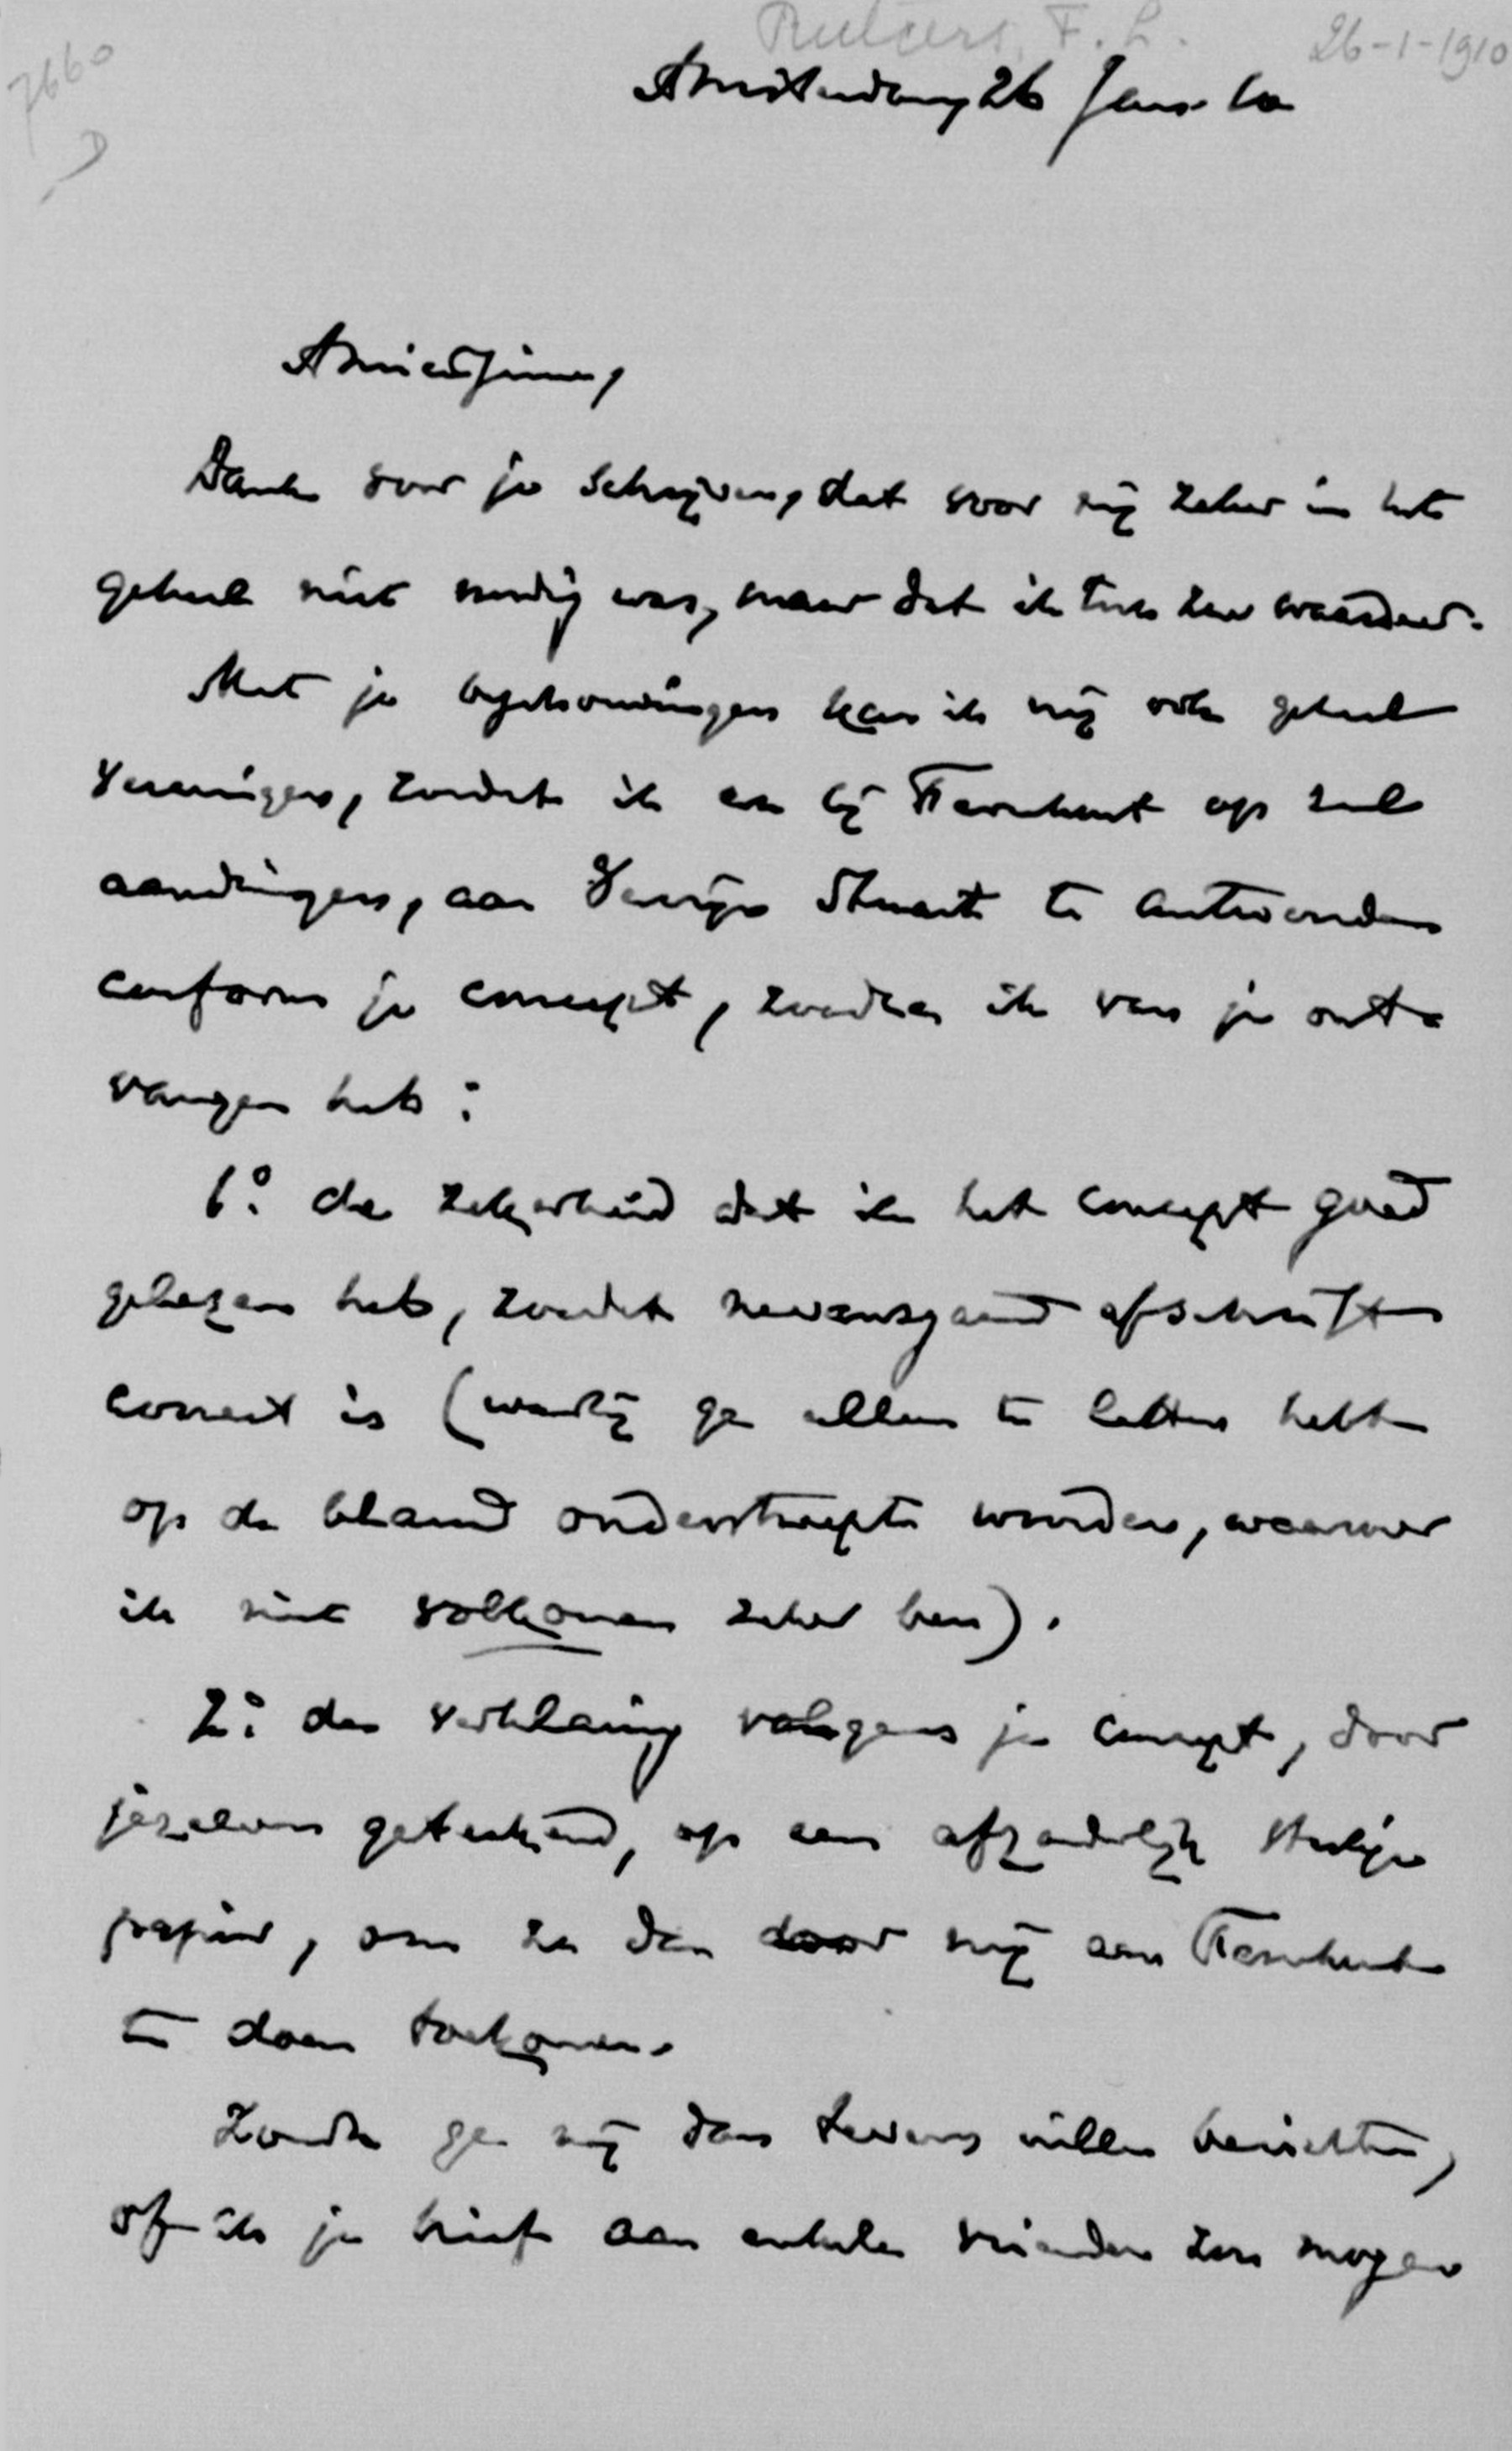 7660
Rutgers, F. L.
26-1-1910
Amsterdam, 26 Jan. 10
Amicissime,
Dank voor je schrijven, dat voor mij zeker in het
geheel niet noodig was, maar dat ik toch zeer waardeer.
Met je beschouwingen kan ik mij ook geheel
vereenigen, zoodat ik er bij Fernhout op zal
aandringen, aan Verrijn Stuart te antwoorden
conform je concept, zoodra ik van je ont-
vangen heb:
1º. de zekerheid dat ik het concept goed
gelezen heb, zoodat nevensgaand afschrift
correct is (waarbij ge alleen te letten hebt
op de blauw onderstreepte woorden, waarover
ik niet volkomen zeker ben).
2º. de verklaring volgens je concept, door
jezelven geteekend, op een afzonderlijk stukje
papier, om ze dan door mij aan Fernhout
te doen toekomen.
Zoudt ge mij dan tevens willen berichten,
of ik je brief aan enkele vrienden zou mogen